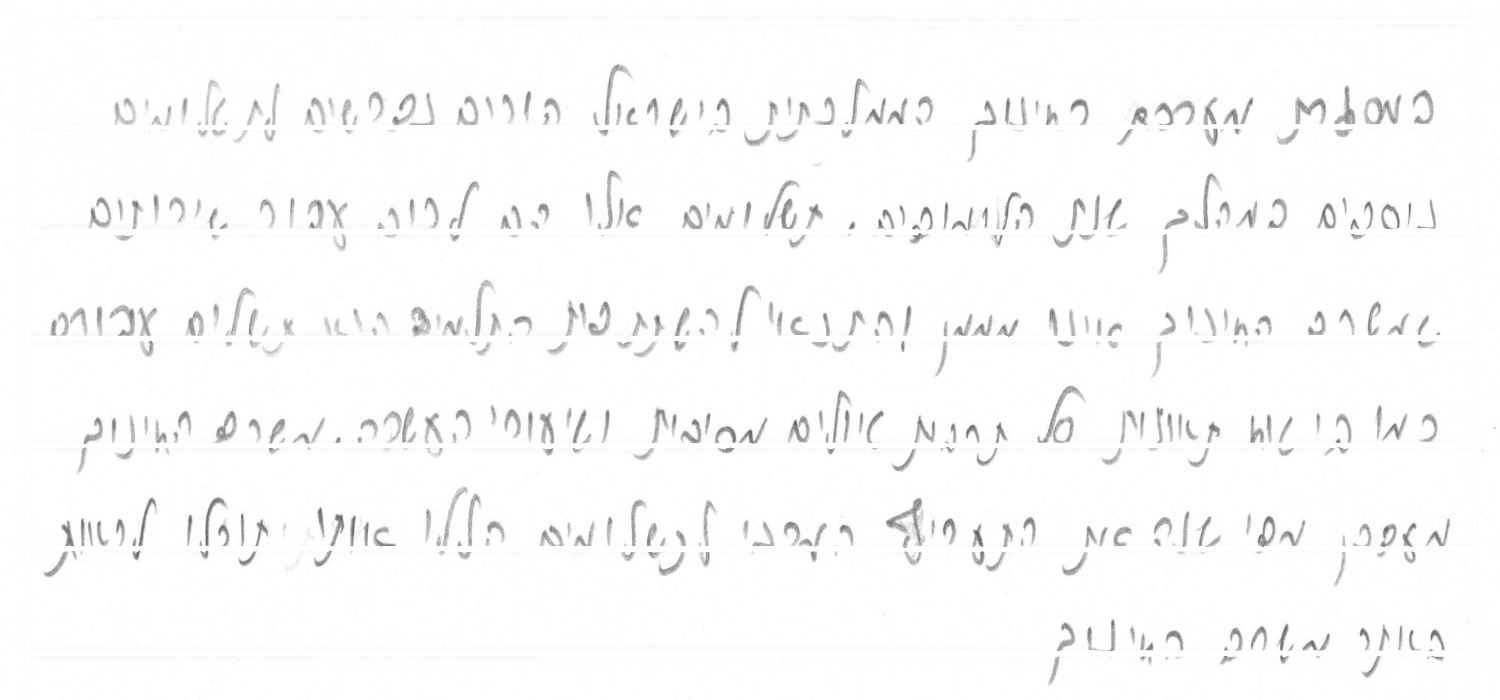 במסגרת מערכת החינוך הממלכתית בישראל הורים נדרשים לתשלומים
נוספים במהלך שנת הלימודים. תשלומים אלו הם לרוב עבור שירותים
שמשרד החינוך איננו מממן והתנאי להשתתפות התלמיד הוא תשלום עבורם
כמו ביטוח תאונות סל תרבות טיולים מסיבות ושיעורי העשרה. משרד החינוך
מעדכן מדי שנה את התעריף המרבי לתשלומים הללו אותו תוכלו לראות
באתר משרד החינוך